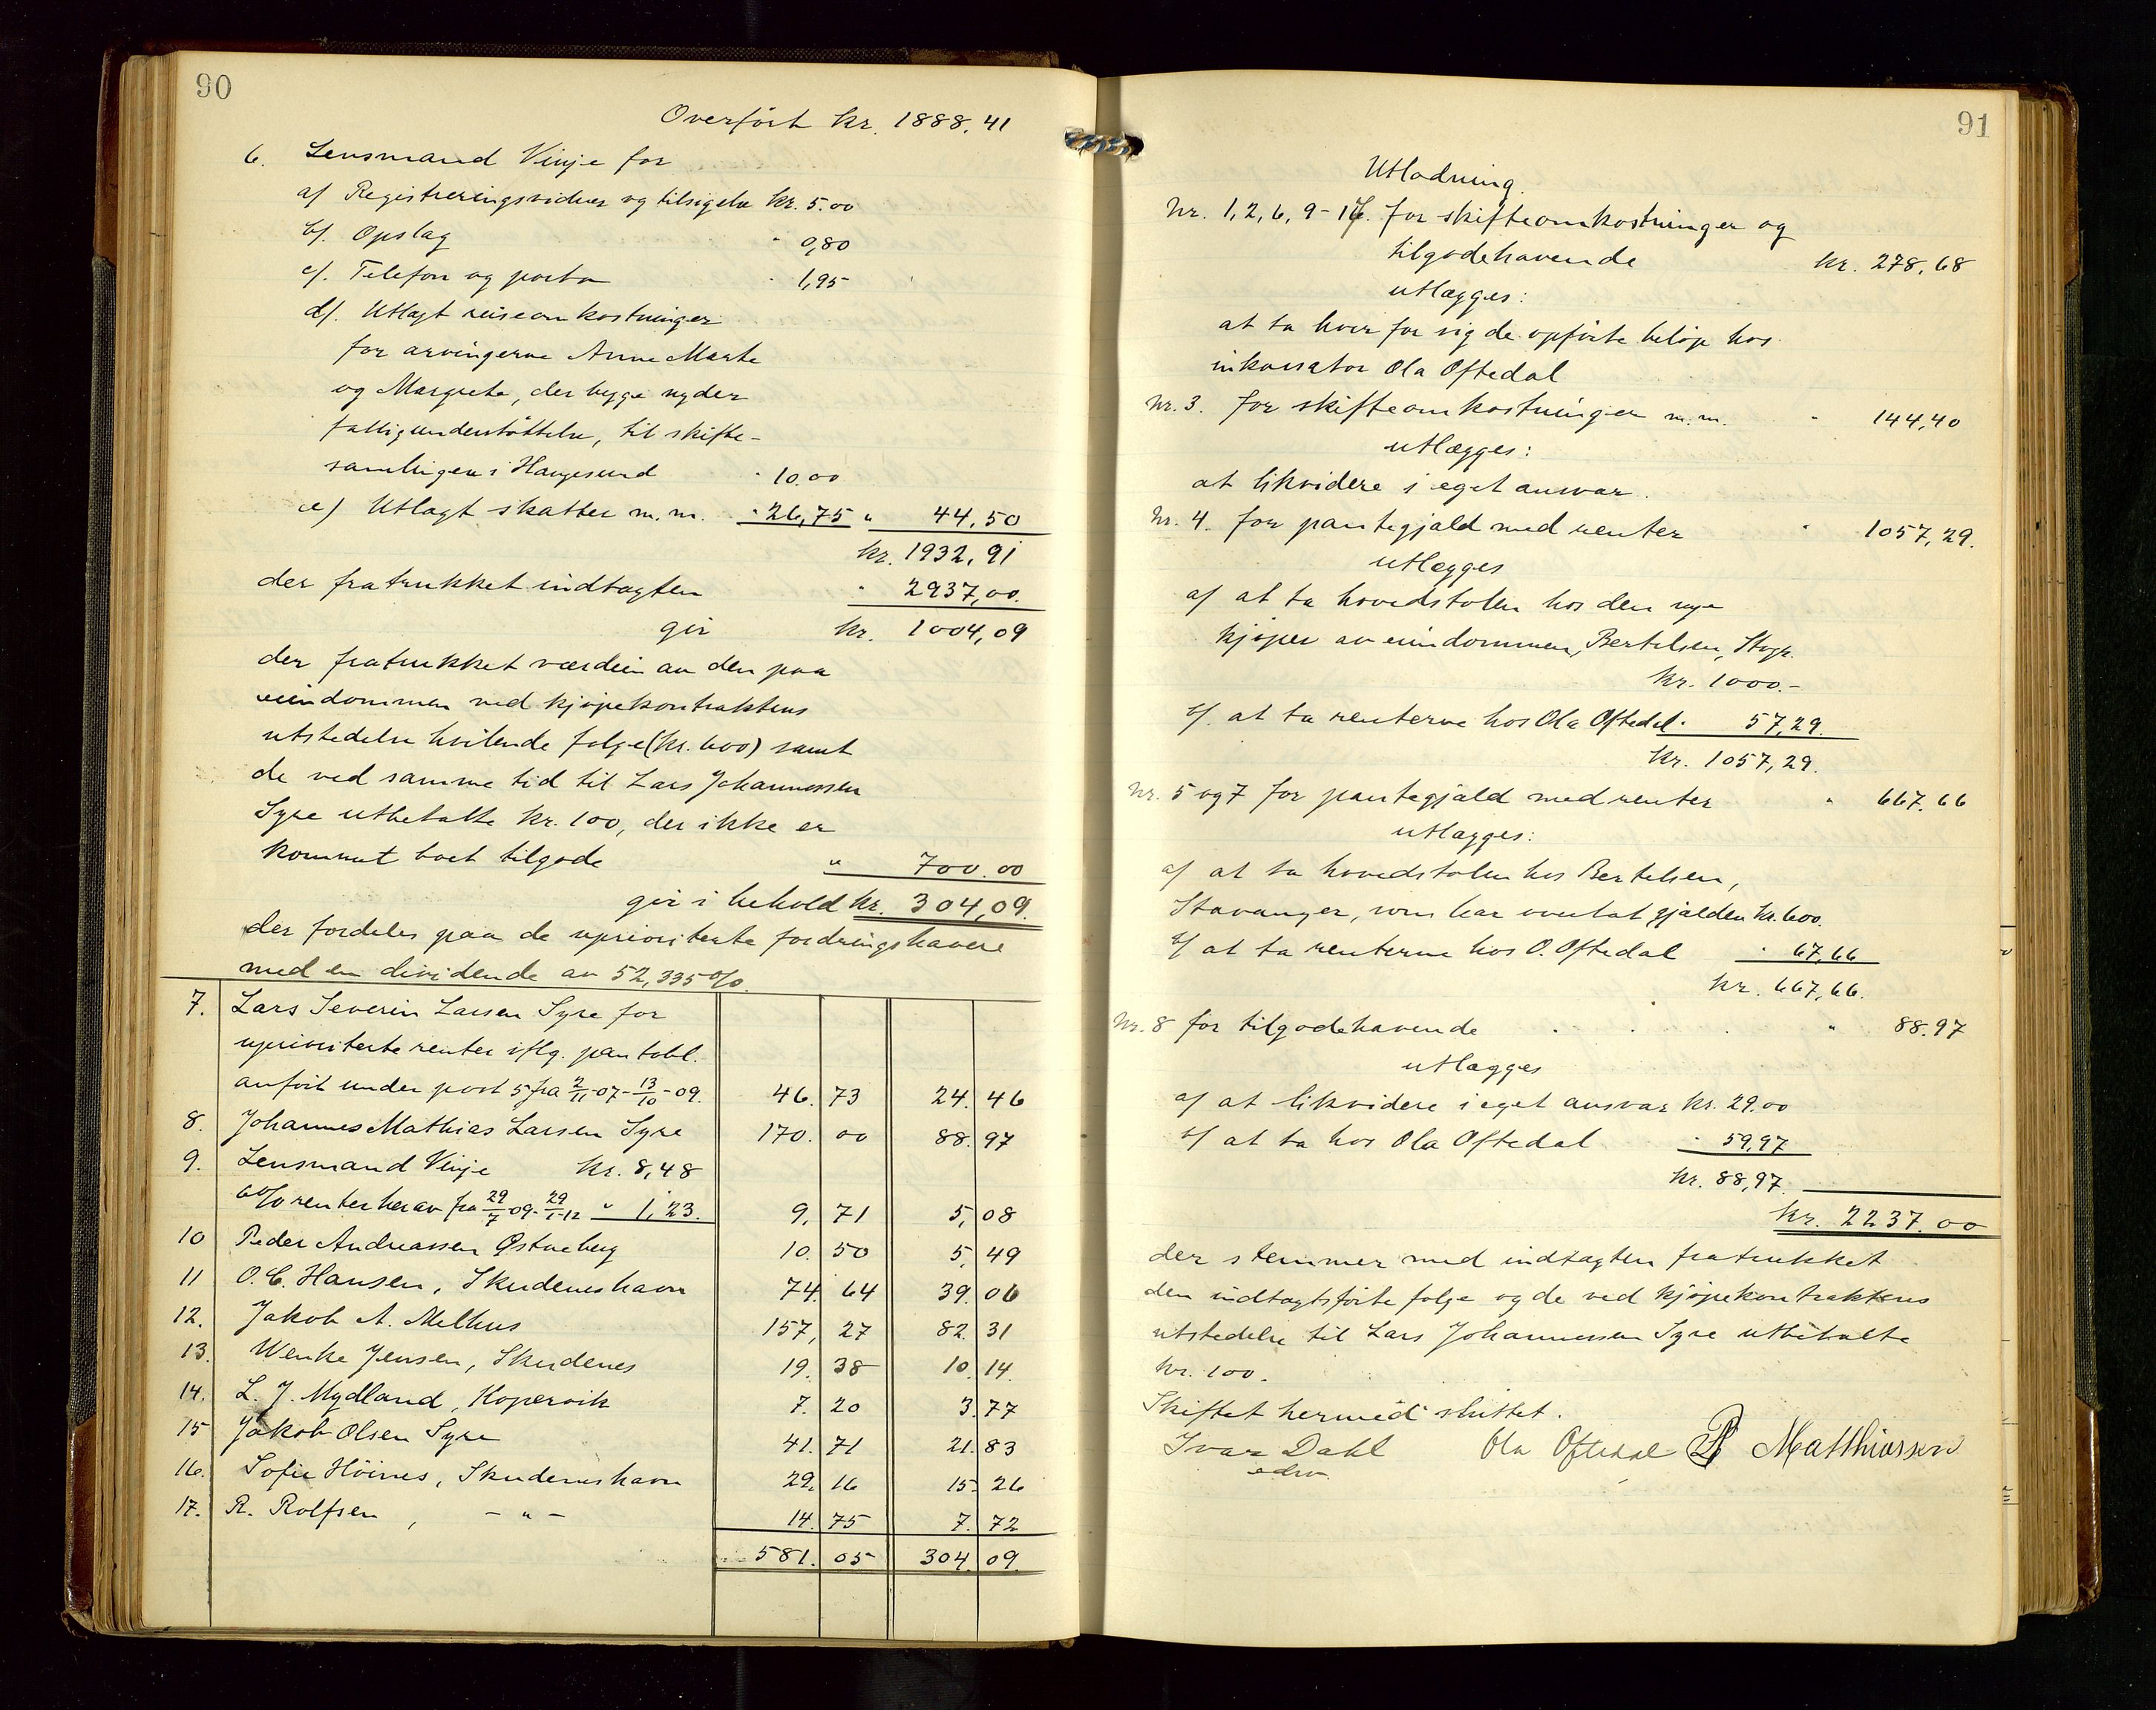 90
Overført kr. 1888,41
6. Lensmand Vinje for
a/ Registreringsvidner og tilsigelse kr. 5.00
b/. Opslag " 0,80
c/. Telefon og porto " 1,95
d/. Utlagt reiseomkostninger
for arvingerne Anne Marte
og Margrete, der begge nyder
fattigunderstøttelse, til skifte-
samlingen i Haugesund " 10.00
e) Utlagt skatter m.m. " 26,75 " 44,50
kr. 1932,91
der fratrukket indtægten " 2937,00.
gir kr. 1004,09
der fratrukket værdien av den paa
eiendommen ved kjøpekontraktens
utstedelse hvilende følge (kr. 600) samt
de ved samme tid til Lars Johannessen
Syre utbetalte kr. 100, der ikke er
kommet boet tilgode " 700.00
gir i behold kr. 304,09.
der fordeles paa de uprioriterte fordringshavere
med en dividende av 52,335 o/o.
7. Lars Severin Larsen Syre for
uprioriterte renter iflg. pantobl.
anført under post 5 fra 2/11-07-13/10-09. 46.73 24.46
8. Johannes Mathias Larsen Syre 170.00 88.97
9. Lensmand Vinje kr. 8,48
6 o/o renter herav fra 29/7-09-29/1-12 " 1,23. 9,71 5,08
10 Peder Andreassen Østneberg 10.50 5,49
11 O. C. Hansen, Skudeneshavn 74.64 39.06
12. Jakob A. Melhus 157,27 82.31
13. Wenke Jensen, Skudenes 19.38 10.14.
14. L. J. Mydland, Kopervik 7.20 3.77
15 Jakob Olsen Syre 41.71 21.83
16. Sofie Høines, Skudeneshavn 29.16 15.26
17. R. Rolfsen, - " - 14.75 7.72
581.05 304.09.
91
Utlodning.
Nr. 1, 2, 6, 9-17. for skifteomkostninger og
tilgodehavende kr. 278,68
utlægges:
at ta hver for sig de opførte beløp hos
inkassator Ola Oftedal
Nr. 3. for skifteomkostninger m.m. " 144,40
utlægges:
at likvidere i eget ansvar.
Nr. 4. for pantegjæld med renter " 1057,29.
utlægges
a/ at ta hovedstolen hos den nye
kjøper av eiendommen, Bertelsen, Stvgr.
kr. 1000.-
b/. at ta renterne hos Ola Oftedal " 57,29.
kr. 1057,29.
Nr. 5 og 7 for pantegjæld med renter " 667.66
utlægges:
a/ at ta hovedstolen hos Bertelsen,
Stavanger, som har overtat gjælden kr. 600.
b/ at ta renterne hos O. Oftedal " 67,66
kr. 667,66.
Nr. 8 for tilgodehavende " 88.97
utlægges
a/ at likvidere i eget ansvar kr. 29.00
b/ at ta hos Ola Oftedal " 59,97
kr. 88,97.
kr. 2237.00
der stemmer med indtægten fratrukket
den indtægtsførte følge og de ved kjøpekontraktens
utstedelse til Lars Johannessen Syre utbetalte
kr. 100.
Skiftet hermed sluttet.
Ivar Dahl Ola Oftedal Matthiassen
edsv.